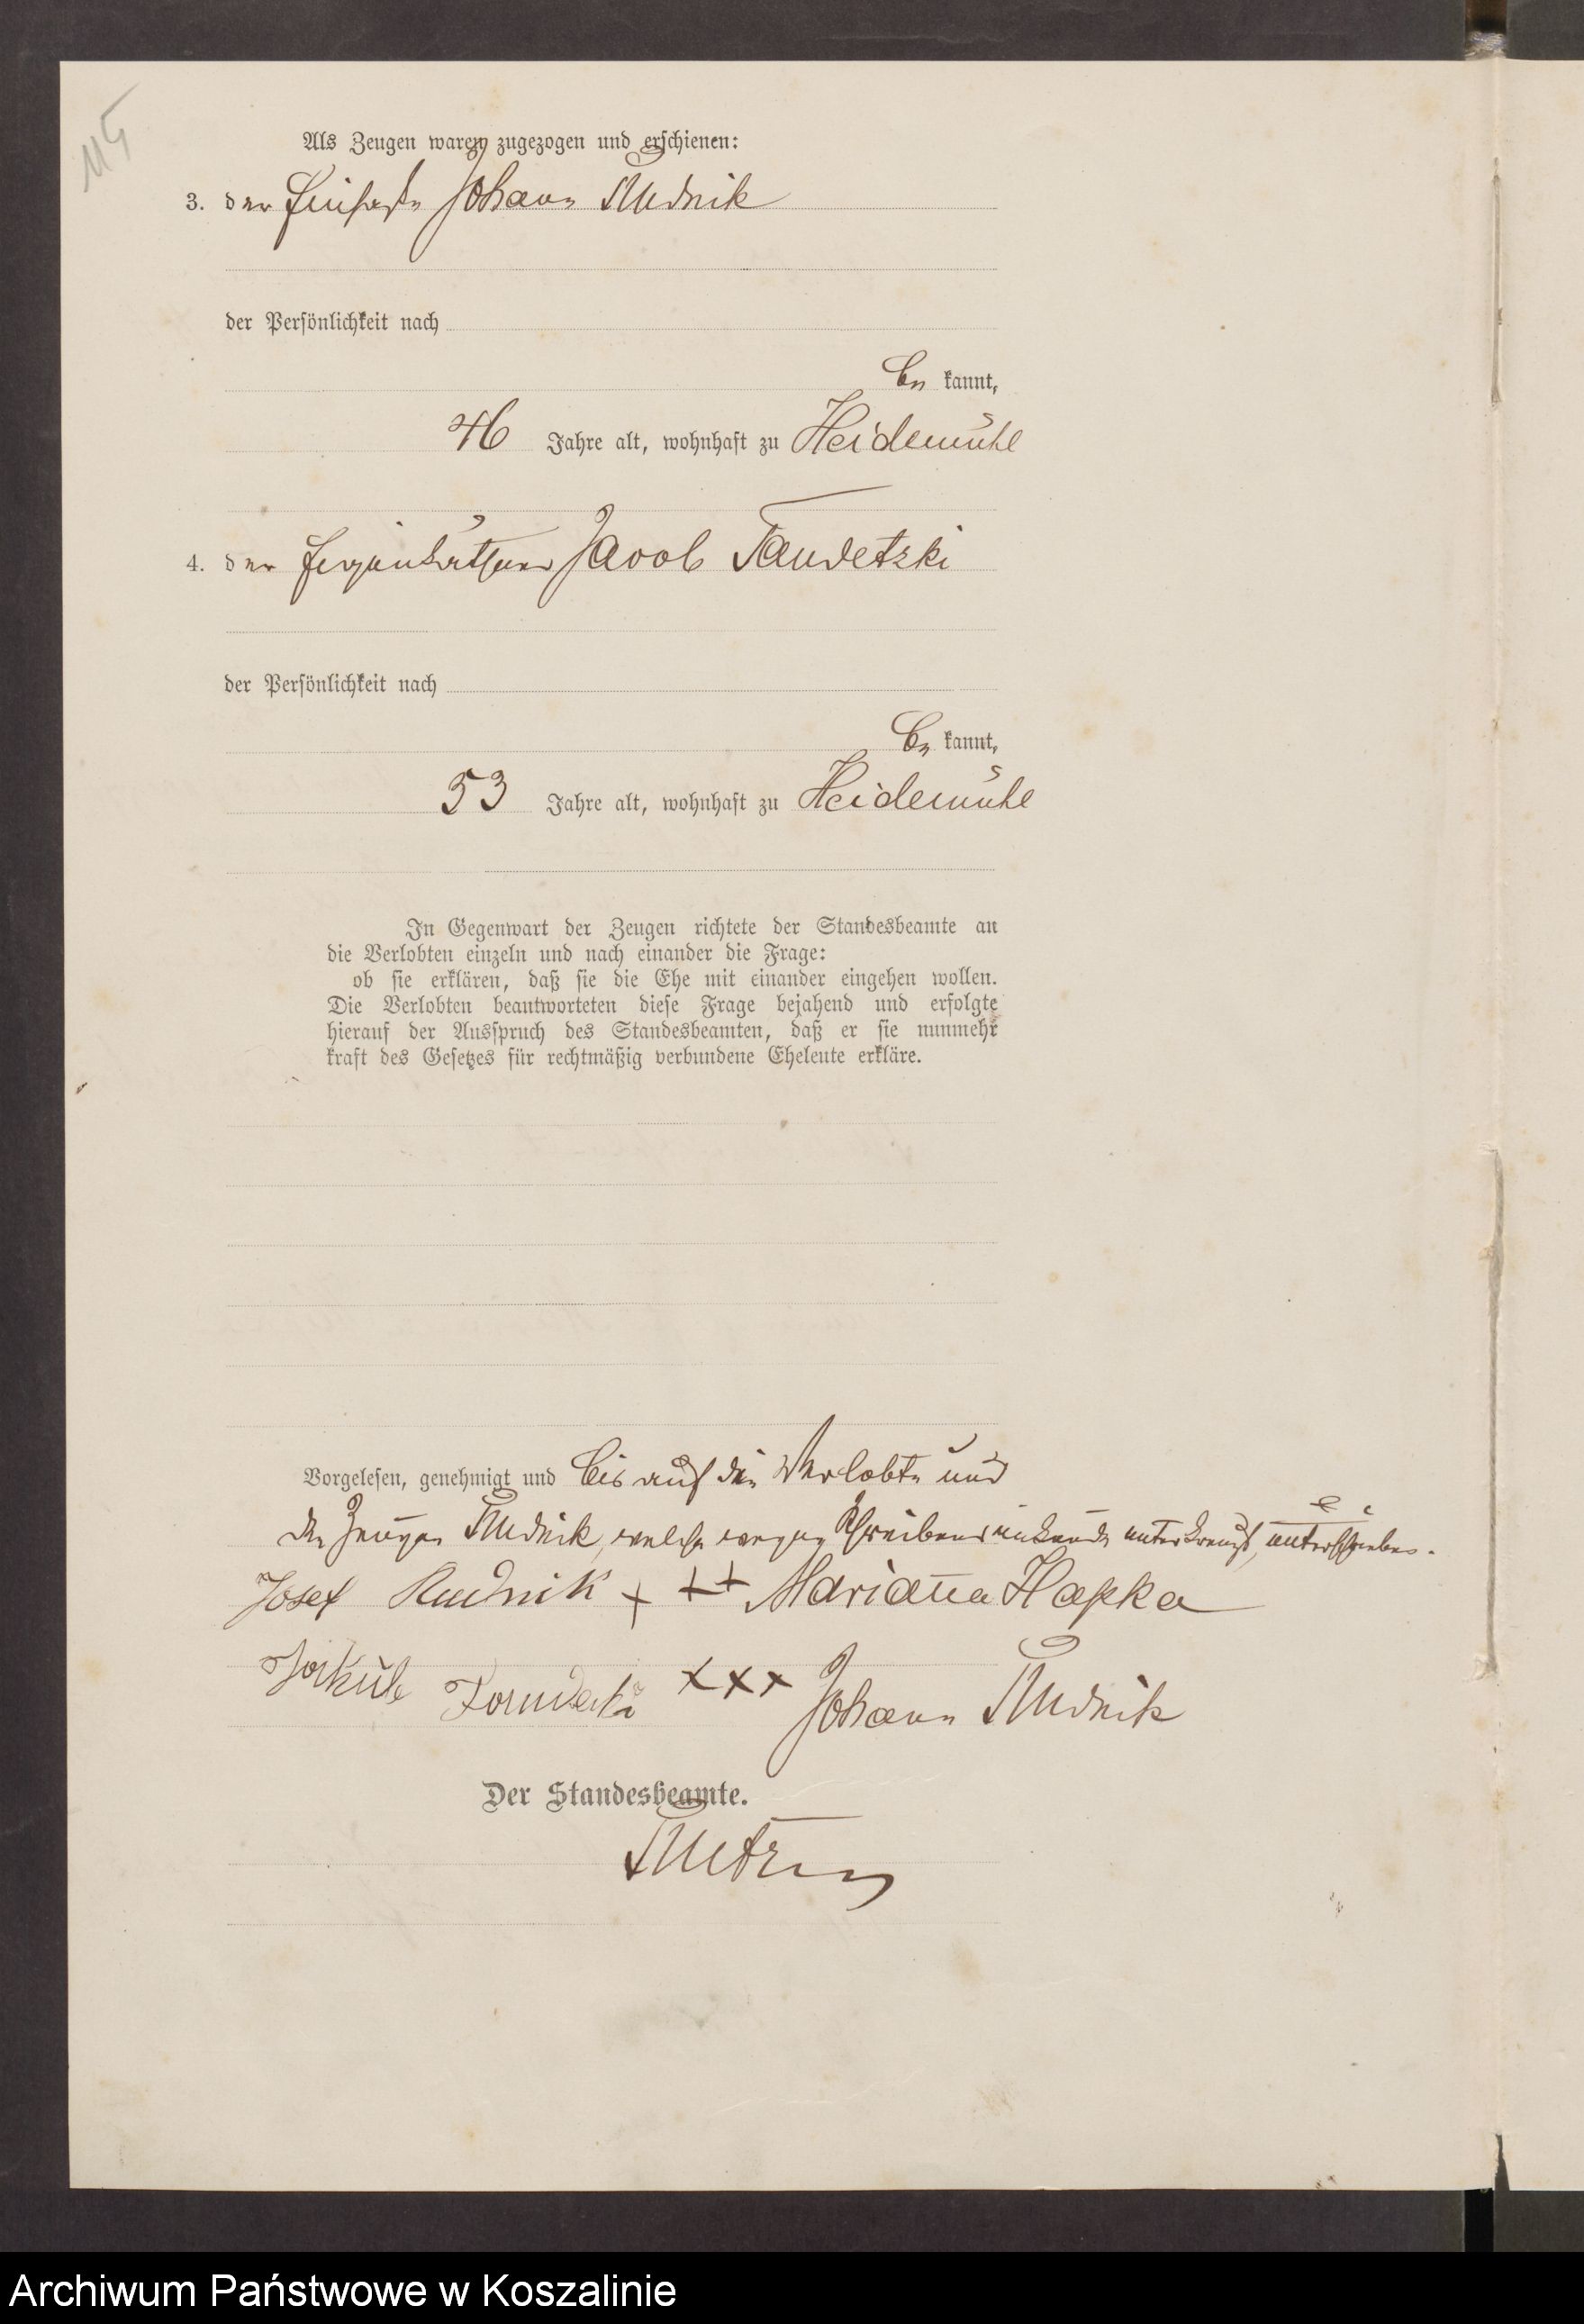 115
Als Zeugen waren zugezogen und erschienen:
3. der Johann Rudnik
der Persönlichkeit nach
be kannt,
46 Jahre alt, wohnhaft zu Heidemühl
4. der Eigenkäthner Jacob Taudetzki
der Persönlichkeit nach
be kannt,
53 Jahre alt, wohnhaft zu Heidemühl
In Gegenwart der Zeugen richtete der Standesbeamte an
die Verlobten einzeln und nach einander die Frage:
ob sie erklären, daß sie die Ehe mit einander eingehen wollen.
Die Verlobten beantworteten diese Frage bejahend und erfolgte
hierauf der Ausspruch des Standesbeamten, daß er sie nunmehr
kraft des Gesetzes für rechtmäßig verbundene Eheleute erkläre.
Vorgelesen, genehmigt und bis auf die Verlobte und
den Zeugen Rudnik, welche wegen Schreibensunkunde unterkreuzt, unterschrieben.
Josef Rudnik + ++ Marianna Hapka
+++ Johann Rudnik
Der Standesbeamte.
Archiwum Państwowe w Koszalinie